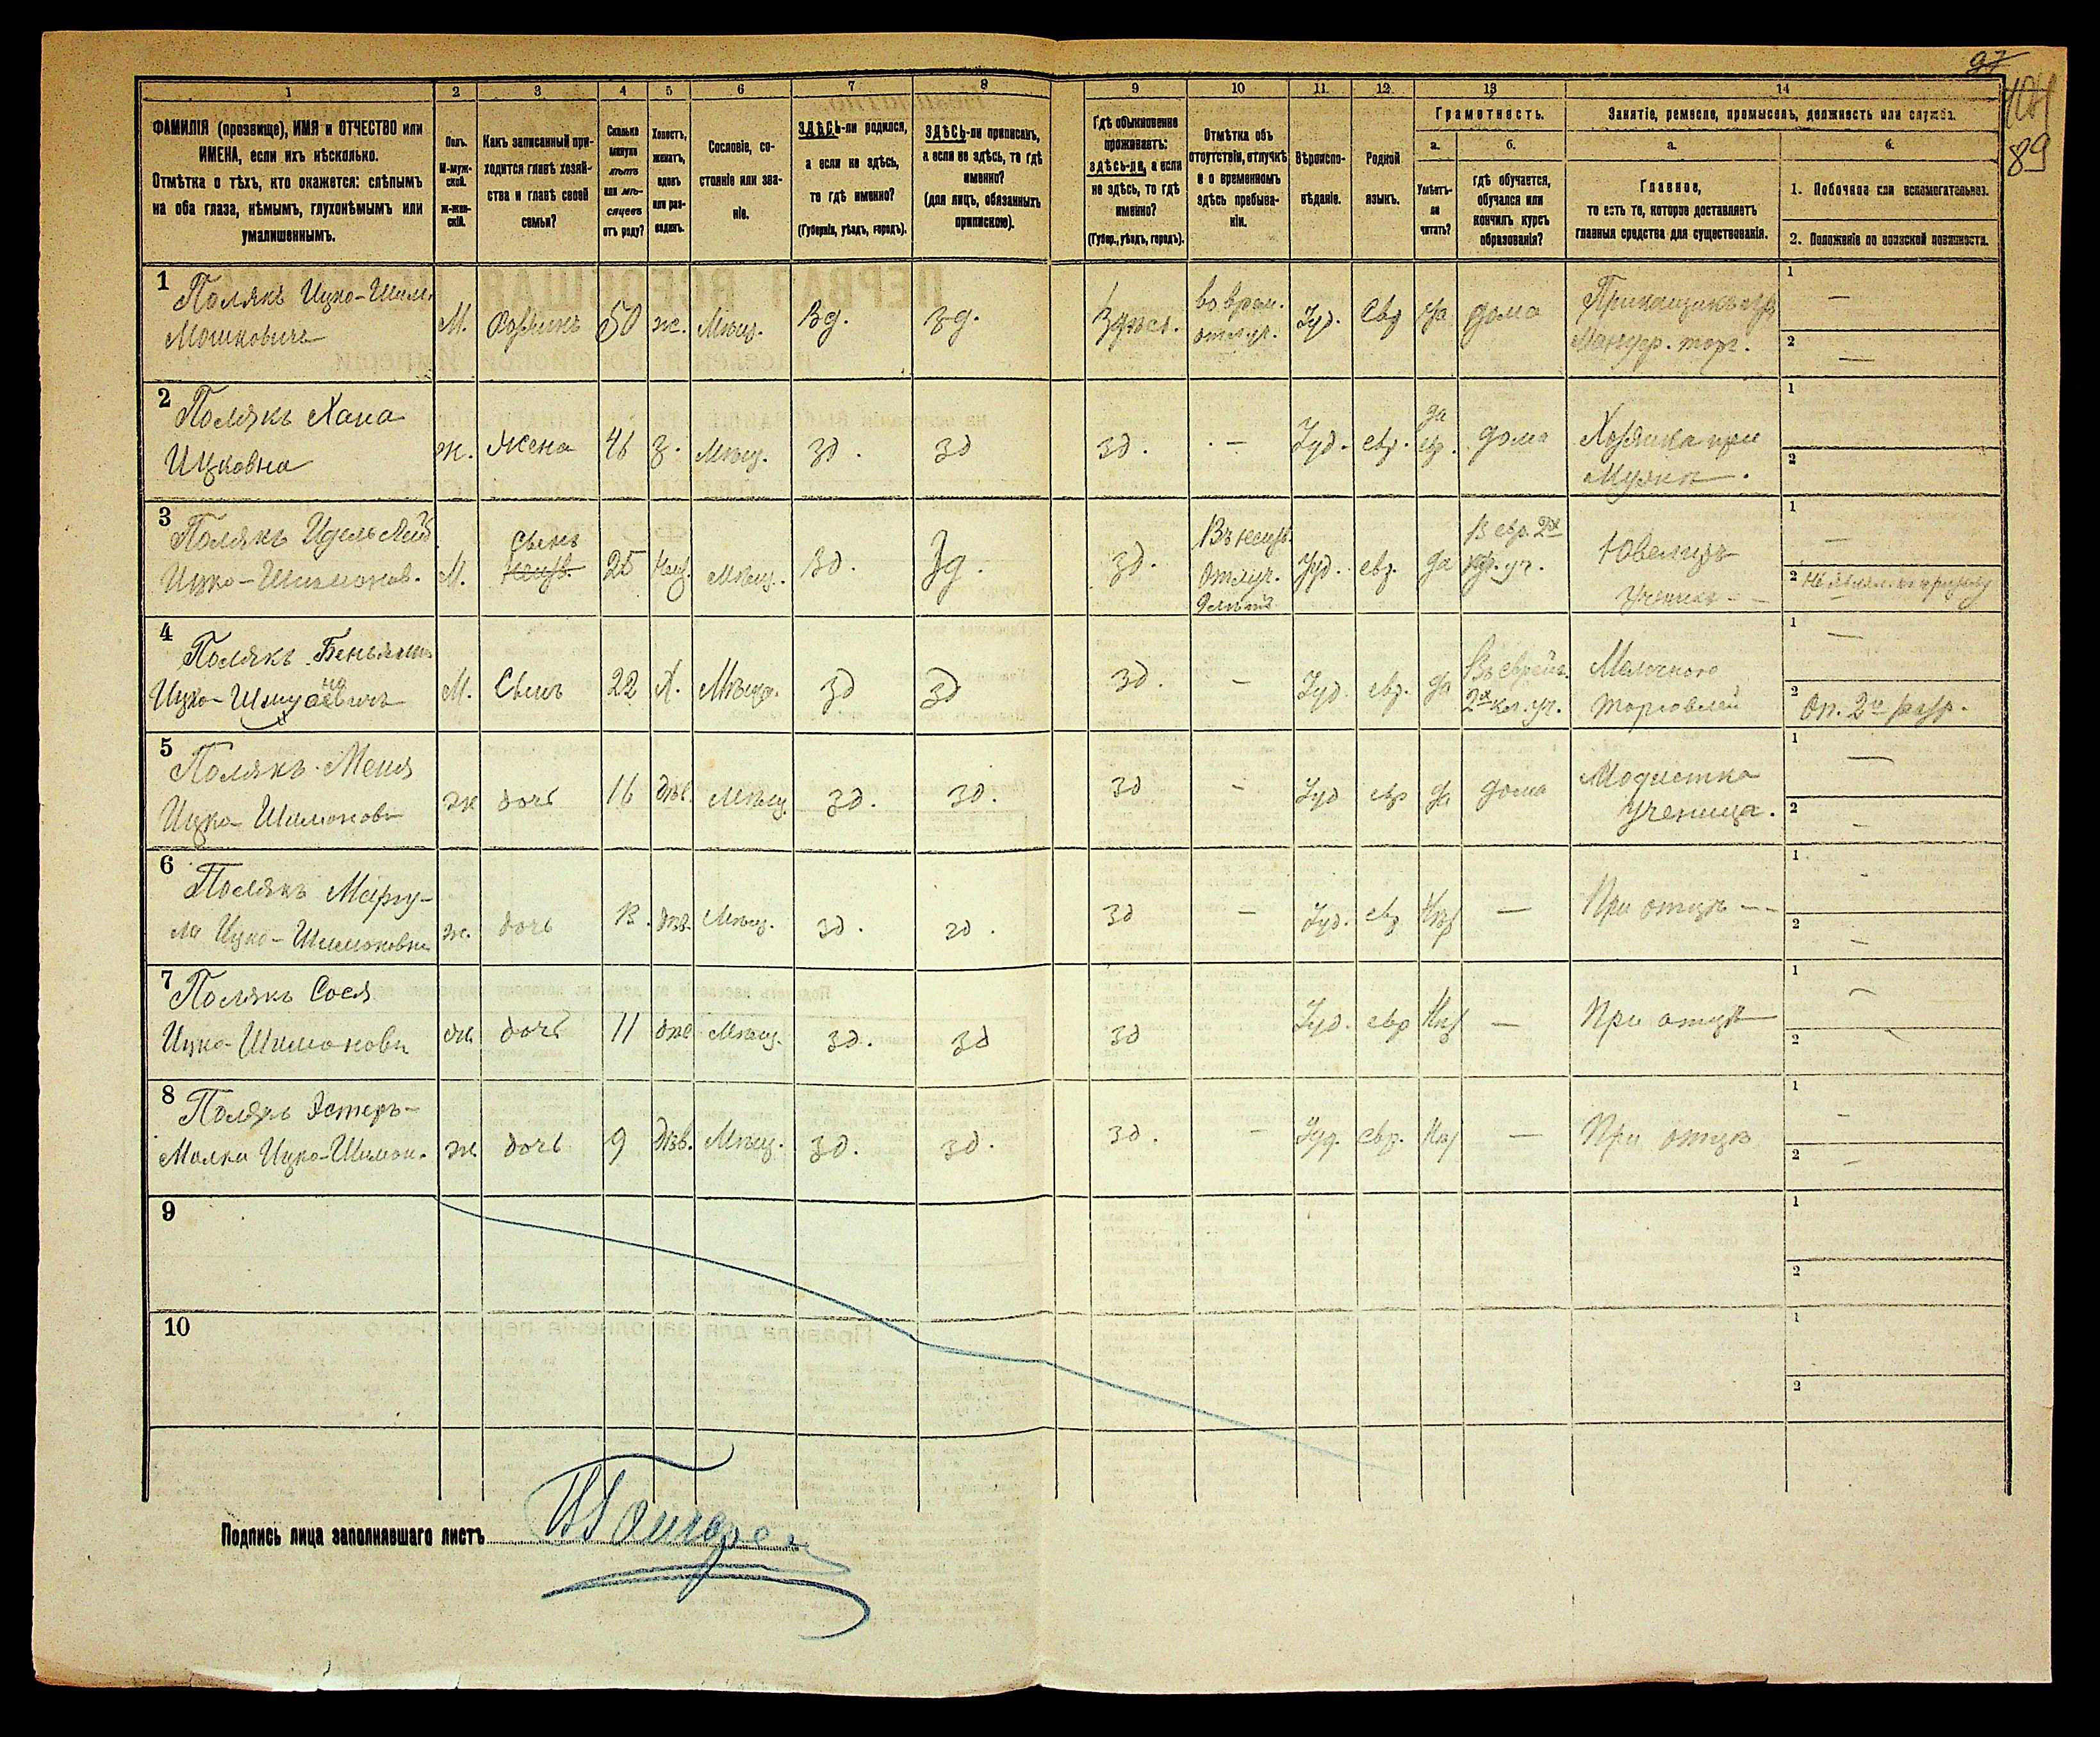 97
104
89
1 2 3 4 5 6 7 8 9 10 11 12 13 14
ФАМИЛІЯ (прозвище), ИМЯ и ОТЧЕСТВО или
ИМЕНА, если ихъ нѣсколько.
Отмѣтка о тѣхъ, кто окажется: слѣпымъ
на оба глаза, нѣмымъ, глухонѣмымъ или
умалишеннымъ.
Полъ.
М-муж-
ской.
ж-жен-
скій.
Какъ записанный при-
ходится главѣ хозяй-
ства и главѣ своей
семьи?
Сколько
минуло
лѣтъ
или мѣ-
сяцевъ
отъ роду?
Холостъ,
женатъ,
вдовъ
или раз-
веденъ.
Сословіе, со-
стояніе или зва-
ніе.
ЗДѢСЬ-ли родился,
а если не здѣсь,
то гдѣ именно?
(Губернія, уѣздъ, городъ).
ЗДѢСЬ-ли приписанъ,
а если не здѣсь, то гдѣ
именно?
(для лицъ, обязанныхъ
припискою).
Гдѣ обыкновенно
проживаетъ:
здѣсь-ли, а если
не здѣсь, то гдѣ
именно?
(Губер., уѣздъ, городъ).
Отмѣтка объ
отсутствіи, отлучкѣ
и о временномъ
здѣсь пребыва-
ніи.
Вѣроиспо-
вѣданіе.
Родной
языкъ.
Грамотность.
а. б.
Умѣетъ-
ли
читать?
гдѣ обучается,
обучался или
кончилъ курсъ
образованія?
Занятіе, ремесло, промыселъ, должность или служба.
а. б.
Главное,
то есть то, которое доставляетъ
главныя средства для существованія.
1. Побочное или вспомогательное.
2. Положеніе по воинской повинности.
1 Полякъ Ицко-Шим.
Мошковичъ
М. Хозяинъ 50 ж. Мѣщ. Зд. зд. Здѣсь. во врем.
отлуч. Іуд. Евр да дома Прикащикъ
Мануф. торг. 1 — 2 —
2 Полякъ Хана
Ицковна
ж. Жена 46 з. Мѣщ. зд. зд зд. — Іуд. евр. да
евр. дома Хозяйка при
Мужѣ. 1 2
3 Полякъ Идель
Ицко-Шимонов.
М. Сынъ 25 Мѣщ. зд. Зд. зд.
отлуч. Іуд. евр. да В евр. 2х
уч. Ювелиръ
Ученикъ 1 — 2
4 Полякъ Беньямин
Ицко-
М. Сынъ 22 Х. Мѣщ. зд зд зд. — Іуд. евр. да Въ еврейс.
2х кл. уч. Мелочною
торговлей 1 — 2 Оп. 2го разр.
5 Полякъ Меня
Ицко-Шимонов
ж дочь 16 дѣв. Мѣщ. зд. зд. зд — Іуд евр да дома Модистка
ученица. 1 — 2 —
6 Полякъ
ла Ицко-Шимоновна
ж. дочь 13 дѣв. Мѣщ. зд. зд. зд — Іуд. евр Нѣт — При отцѣ 1 - 2 —
7 Полякъ Сося
Ицко-Шимонов
ж. дочь 11 дѣв Мѣщ. зд. зд зд Іуд. евр Нѣт — При отцѣ 1 — 2
8 Полякъ Эстеръ-
Малка Ицко-Шимон.
ж. дочь 9 дѣв. Мѣщ. зд. зд. зд. — Іуд. евр. Нѣт — При отцѣ 1 — 2 —
9 1 2
10 1 2
Подпись лица заполнявшаго листъ